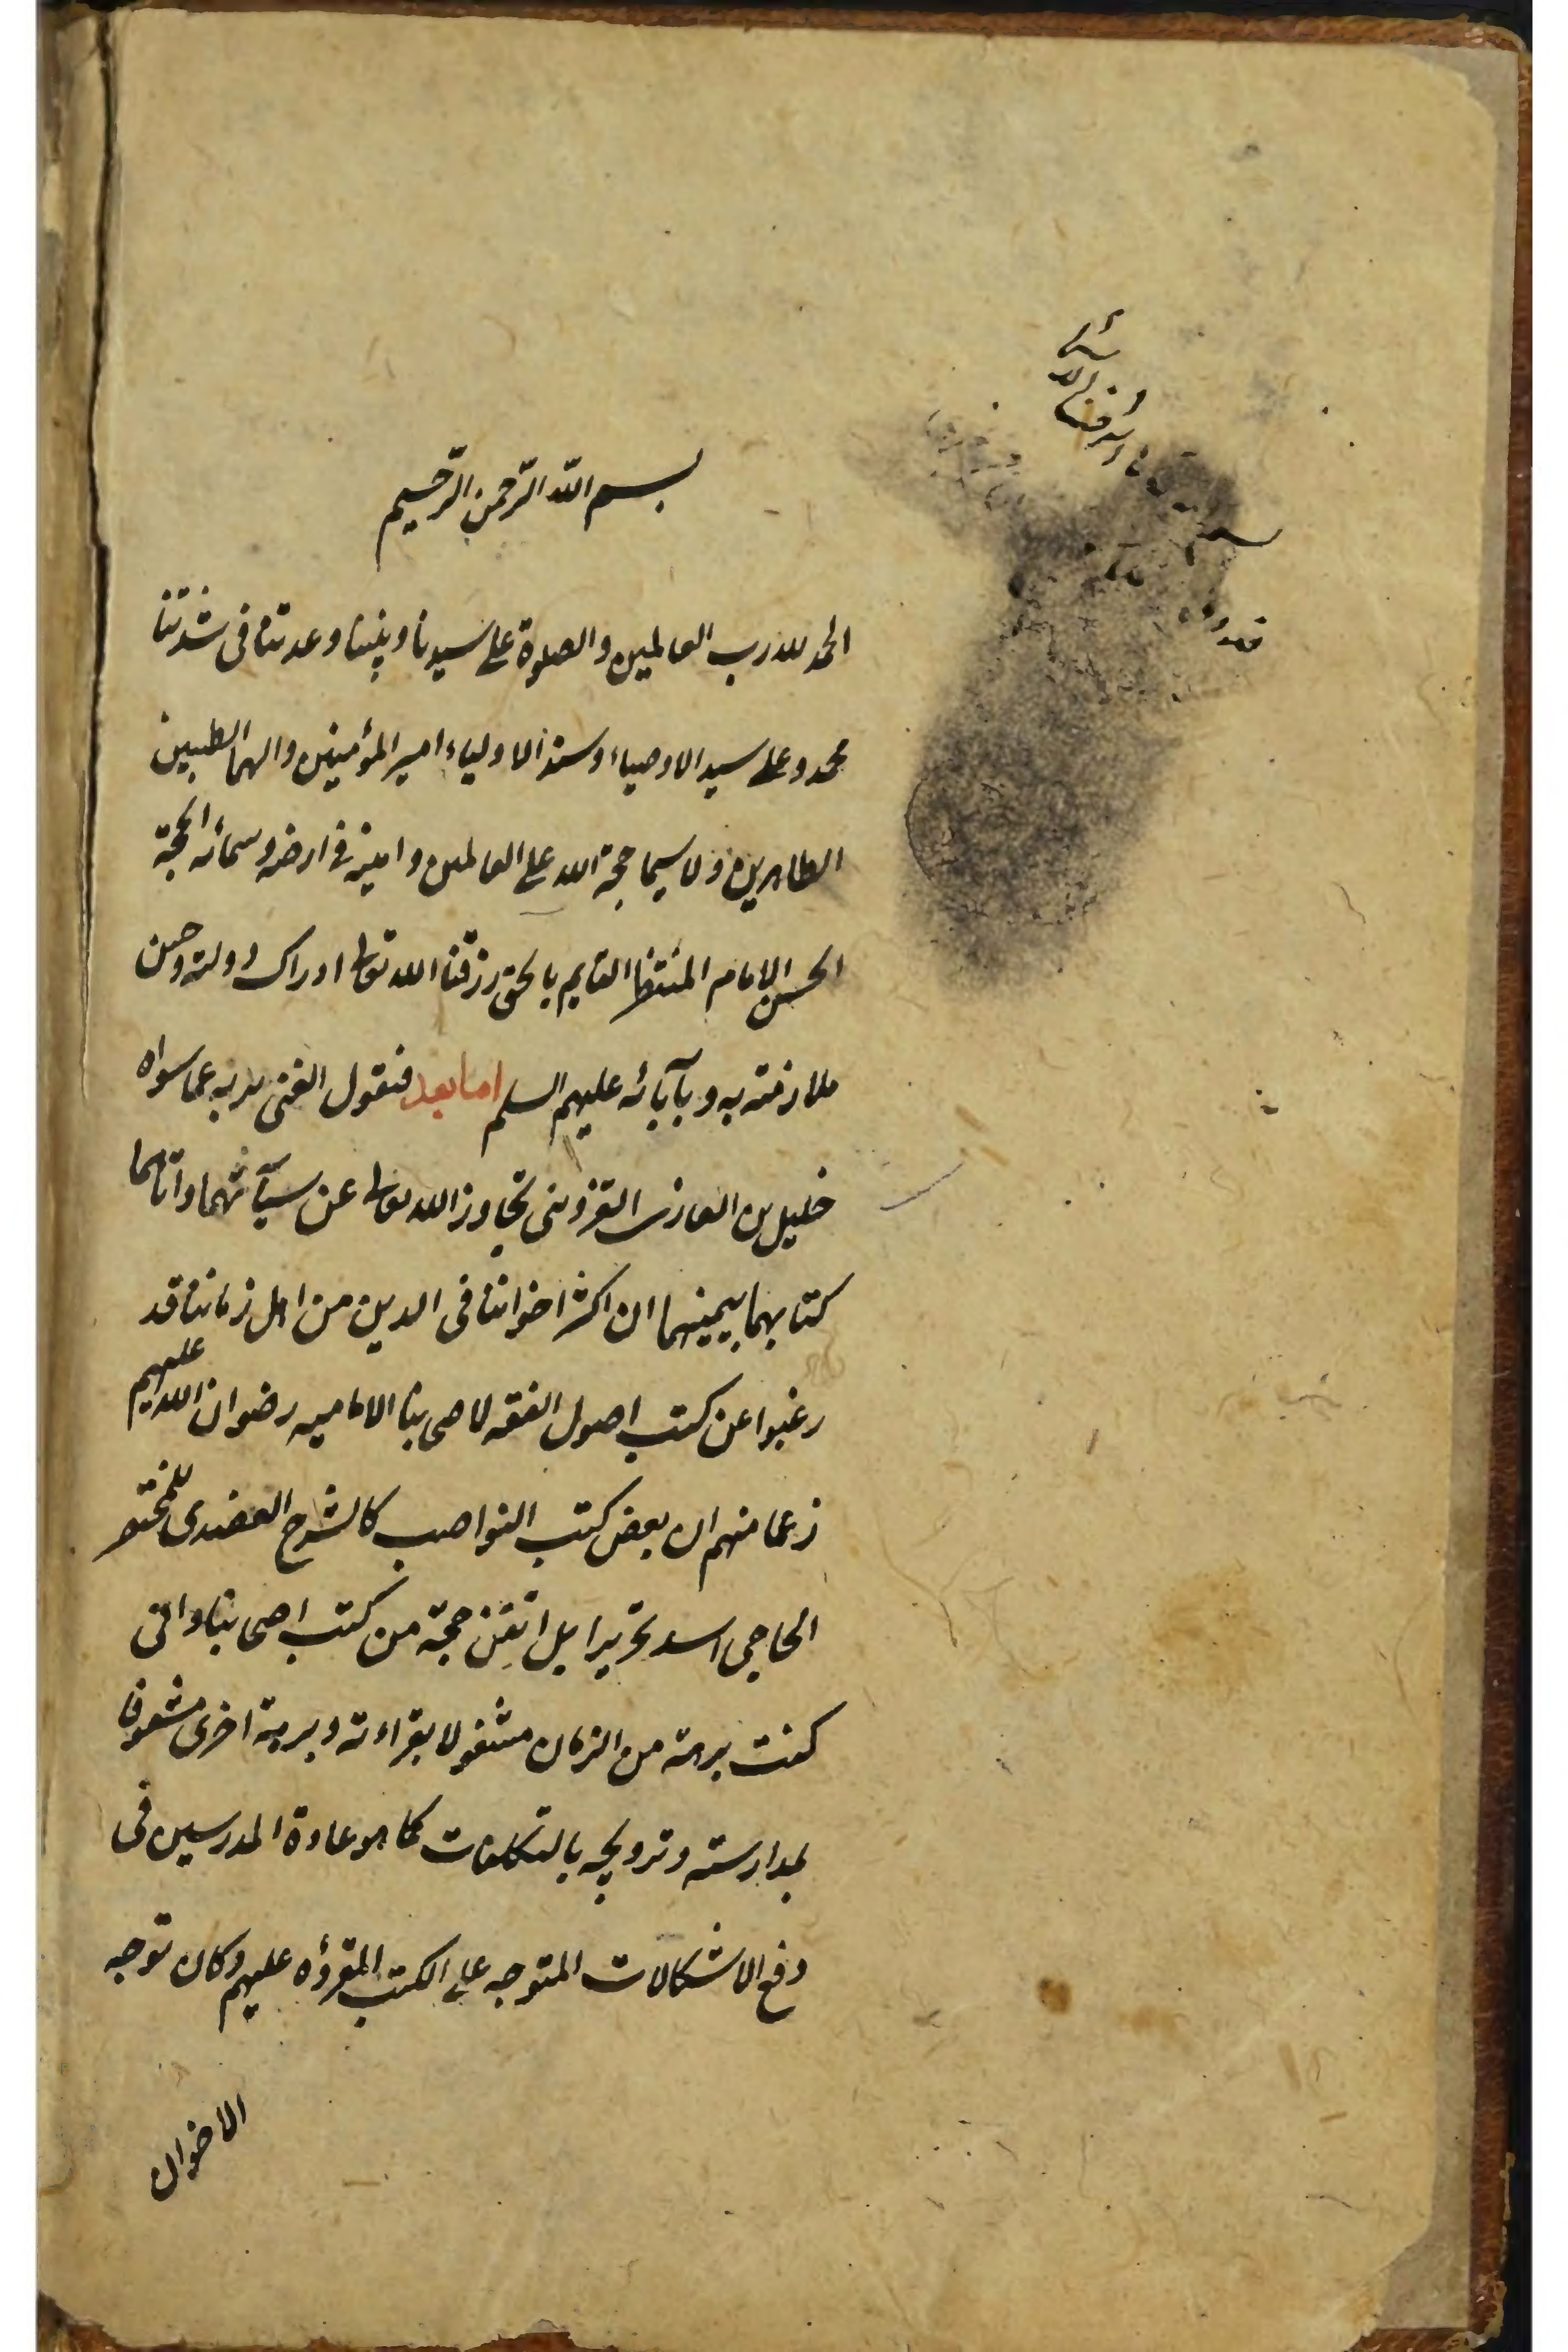 بسم الله الرحمن الرحيم
الحمد لله رب العالمين والصلوة على سيدنا ونبينا وعدتنا فى شدتنا
محمد وعلى سيد الاوصياء وسند الاولياء امير المؤمنين والهما الطيبين
الطاهرين ولا سيما حجة الله على العالمين وامينه فى ارضه وسمائه الحجة
الحسن الامام المنتظر القايم بالحق رزقنا الله تعالى ادراك دولته وحسن
ملازمته به وبآبائه عليهم السلم اما بعد فنقول الغنى بربه عما سواه
خليل بن الغازى القزوينى تجاوز الله تعالى عن سيآتهما واتاهما
كتابهما بيمينهما ان اكثر اخواننا فى الدين من اهل زماننا قد
رغبوا عن كتب اصول الفقه لاصحابنا الاماميه رضوان الله عليهم
زعما منهم ان بعض كتب النواصب كالشرح العضدى للمختصر
الحاجبى اسد تحريرا بل اتقن حجة من كتب اصحابنا وانى
كنت برهة من الزمان مشغولا بقراءته وبرهة اخرى مشعوفا
بمدارسته وترويجه بالتكلفات كما هو عادة المدرسين فى
دفع الاشكالات المتوجه على الكتب المقروه عليهم وكان توجه
الاخوان